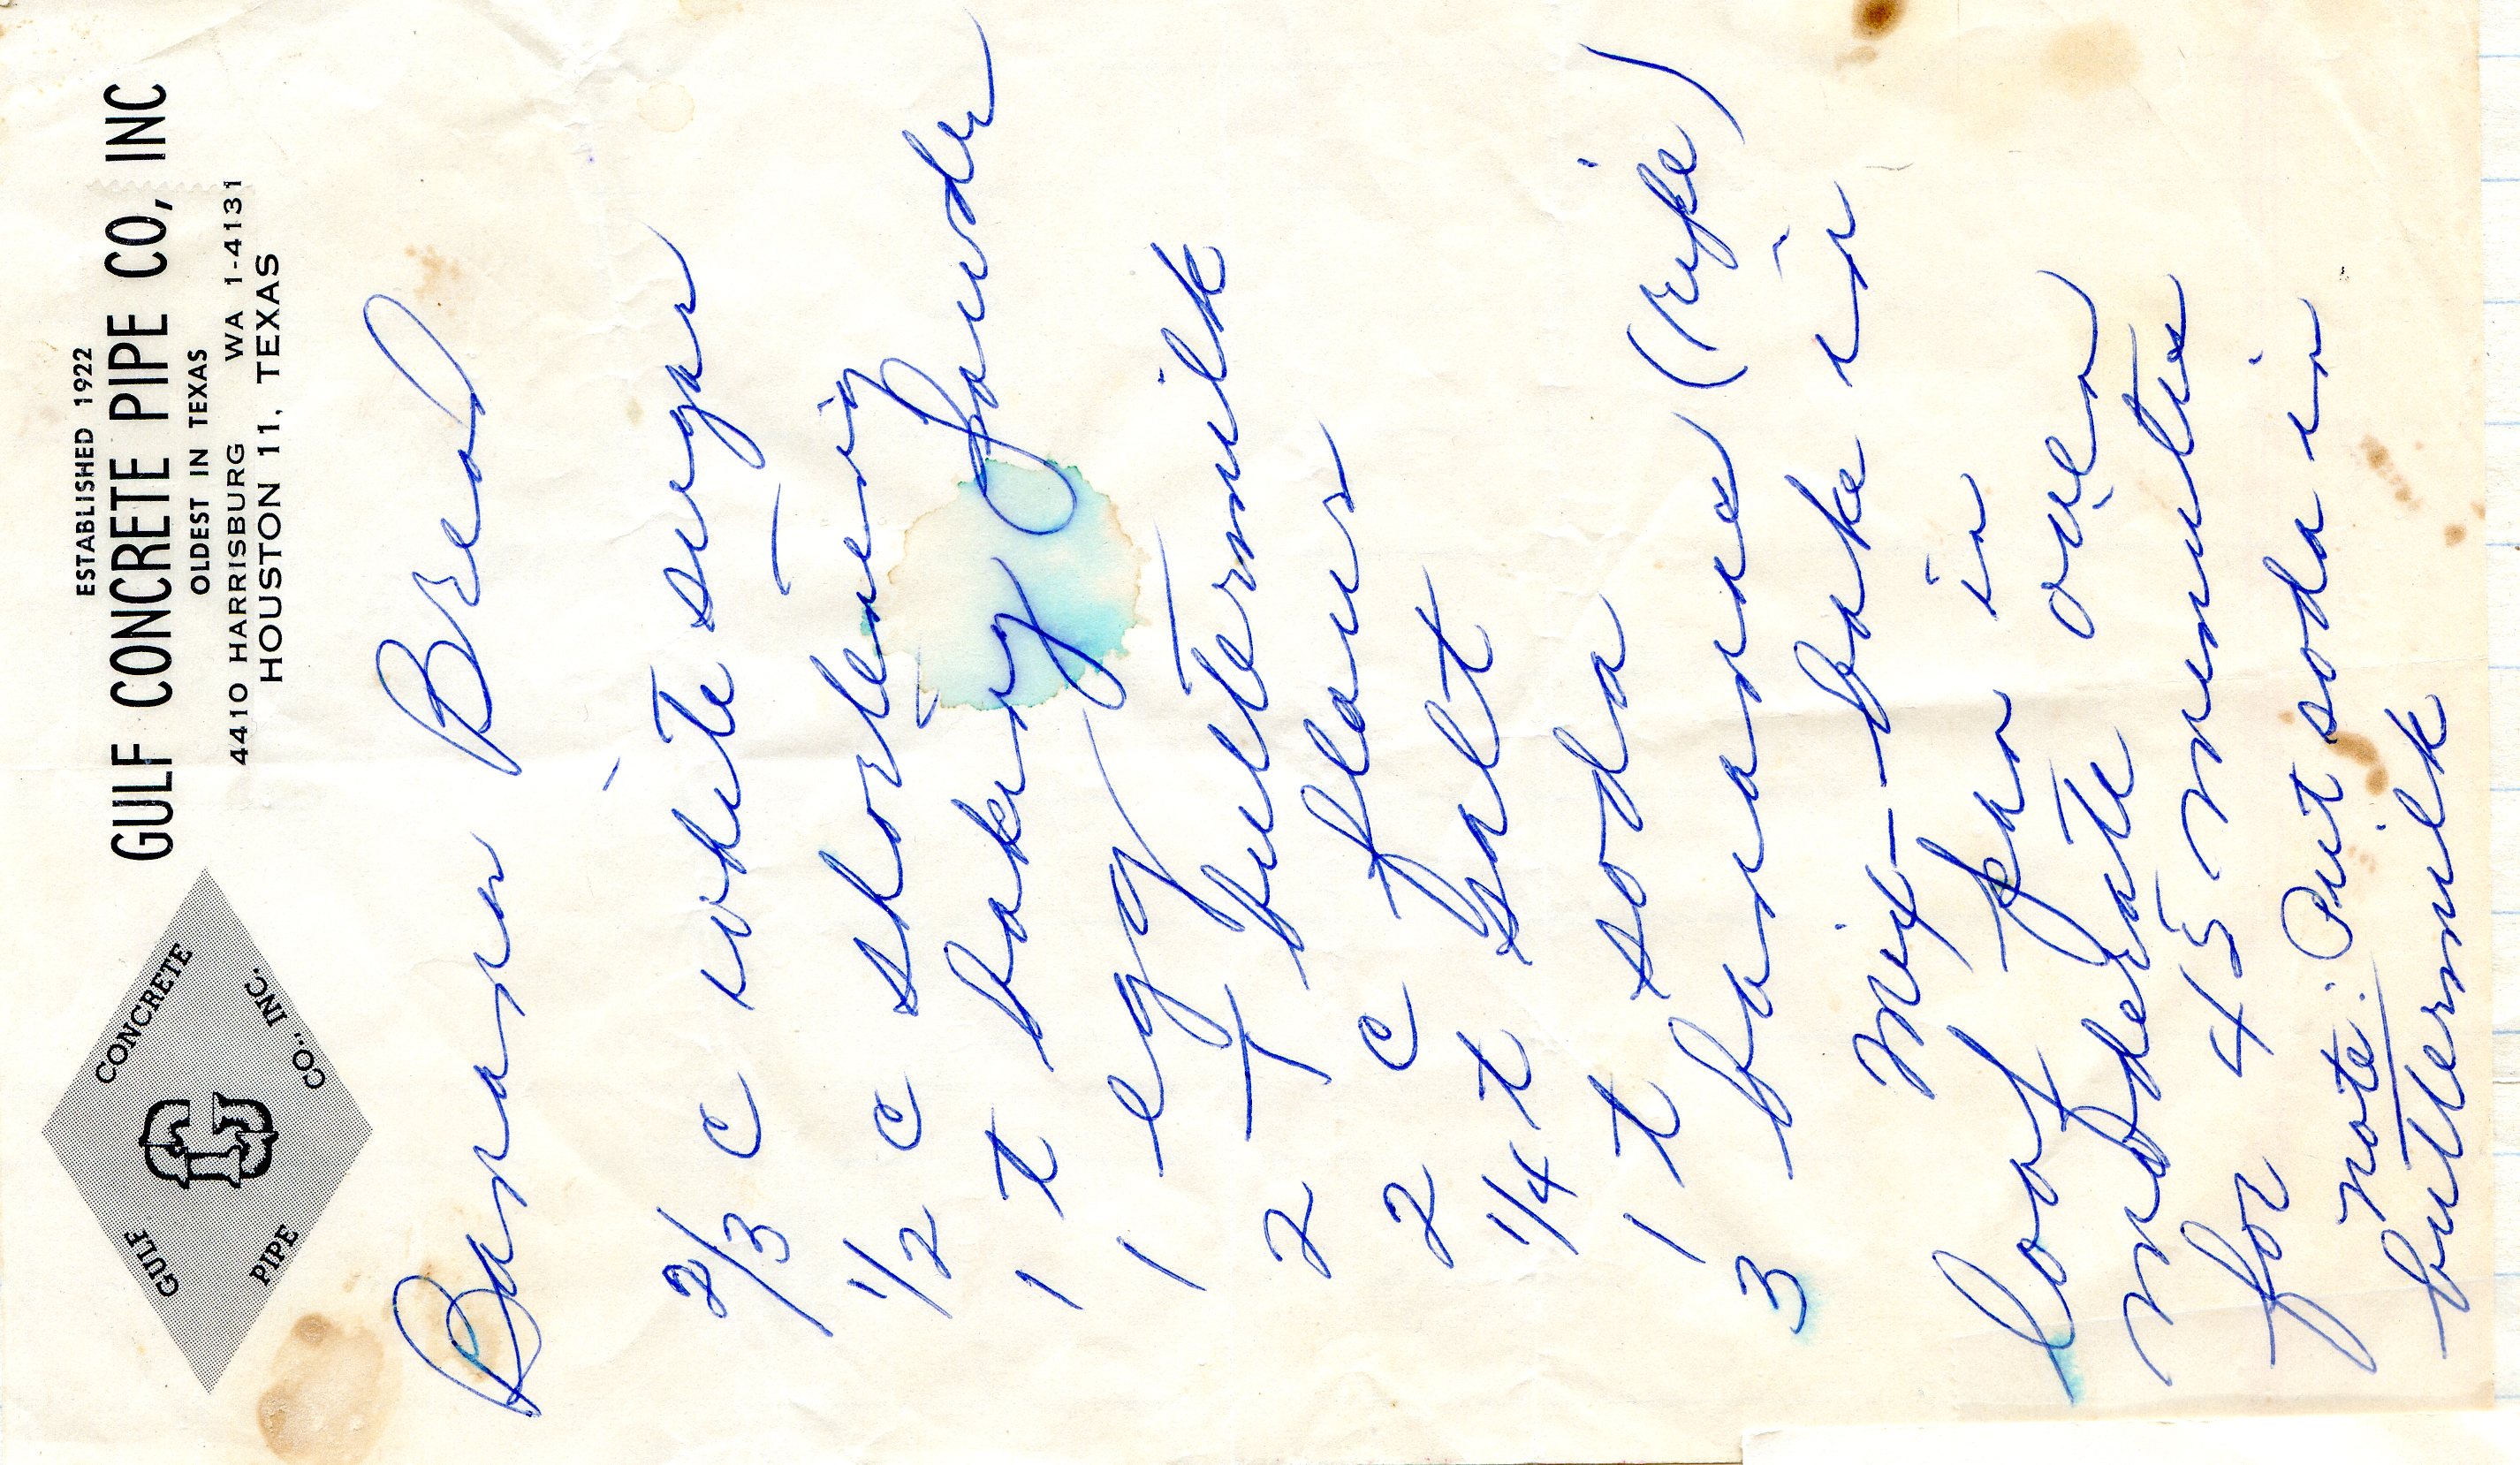 ESTABLISHED 1922
GULF CONCRETE PIPE CO, INC
OLDEST IN TEXAS
4410 HARRISBURG WA 1-4131
HOUSTON 11, TEXAS
GULF CONCRETE
PIPE CO., INC.
Banana Bread
2/3 c white sugar
1/2 c shortening
1 t baking powder
1 egg
2 T buttermilk
2 c flour
1/4 t salt
1 t soda
3 bananas (ripe)
Mix - bake in
loaf pan in
moderate oven
for 45 minutes
note: Put soda in
buttermilk